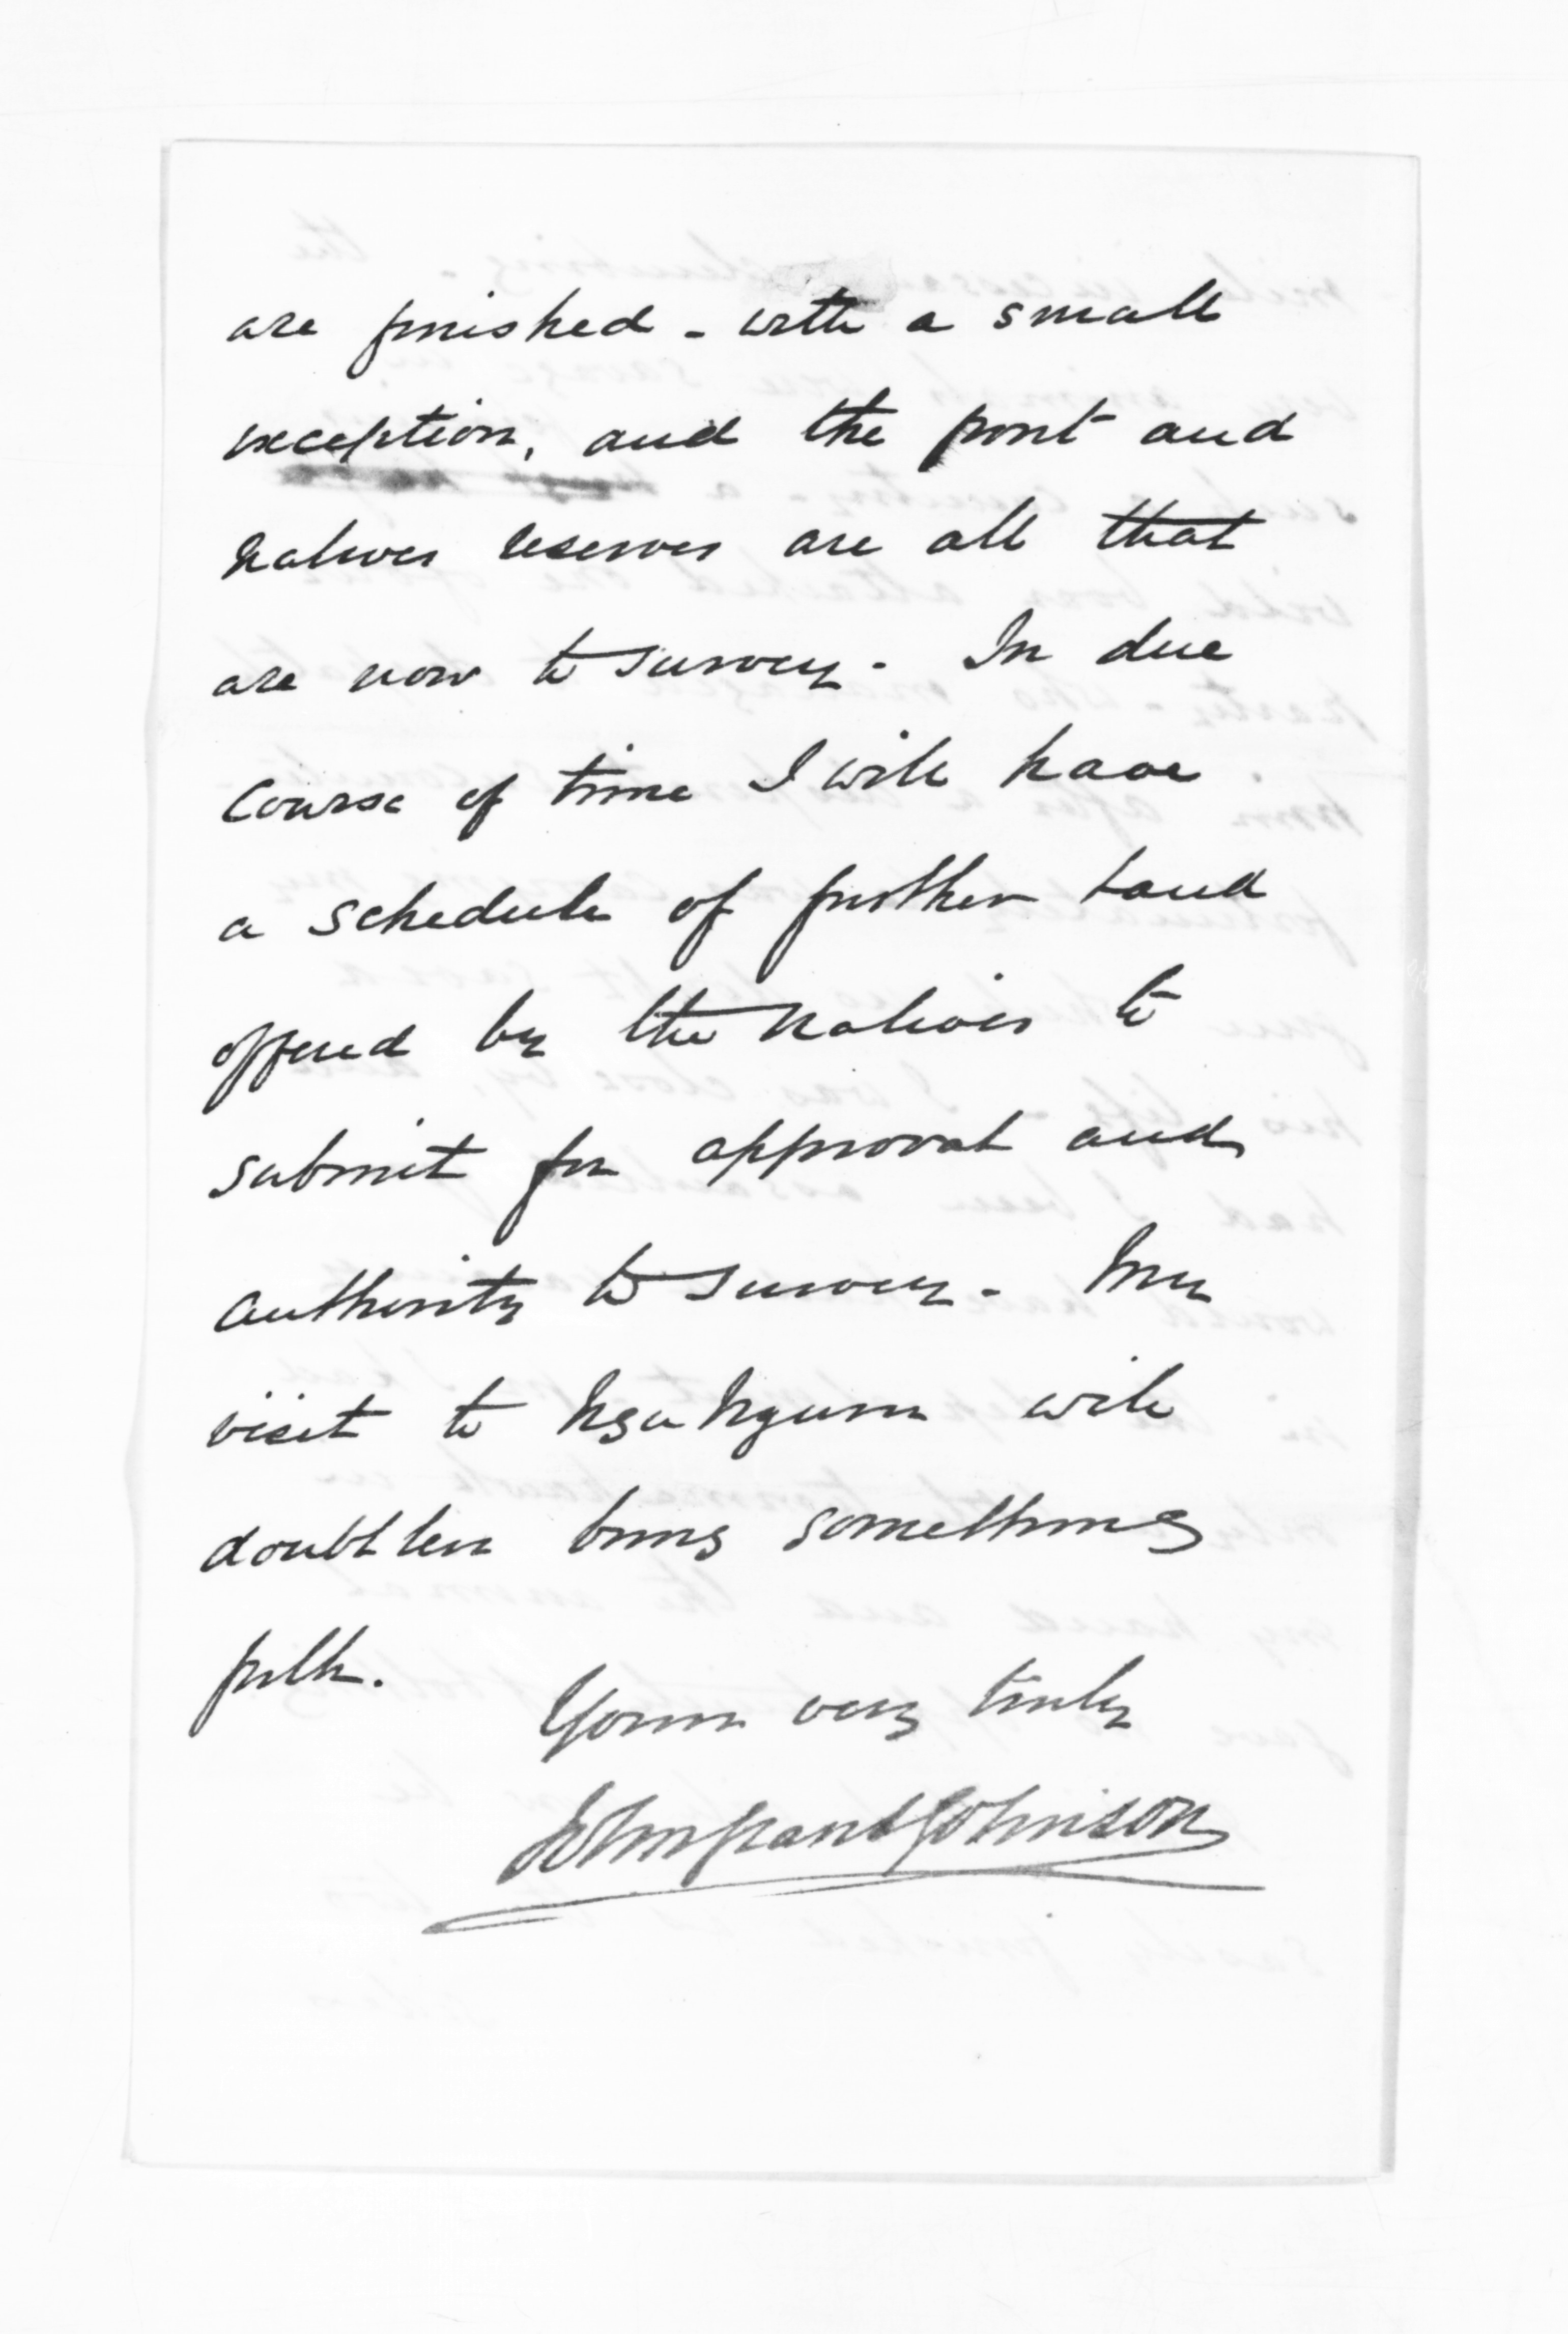 are finished - with a small
exception, and the pont and
natives reserves are all that
are now to survey - In due
course of time I will have
a schedule of further land
offered by the natives to
submit for approval and
authority to survey - My
visit to will
doubtless bring something
forth.
Yours very truly
John Grant Johnson